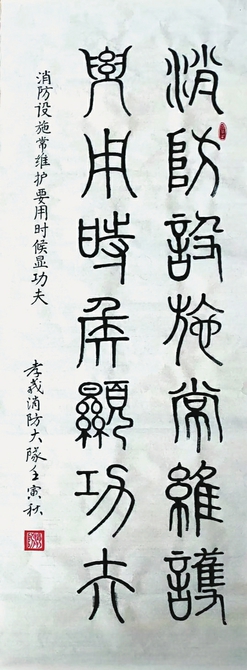 消防設施常維護
要用時候顯功夫
消防设施常维护要用时候显功夫
孝義消防大隊壬寅秋